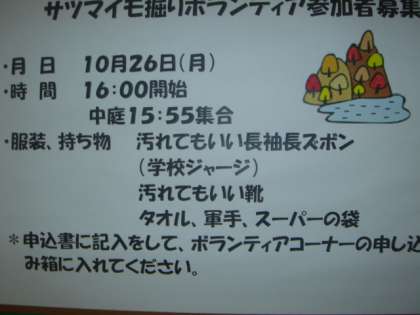 サツマイモ掘りボランティア参加者募集
・月 日 10月26日(月)
・時 間 16:00開始
中庭15:55集合
・服装、持ち物 汚れてもいい長袖長ズボン
(学校ジャージ)
汚れてもいい靴
タオル、軍手、スーパーの袋
*申込書に記入をして、ボランティアコーナーの申し込
み箱に入れてください。